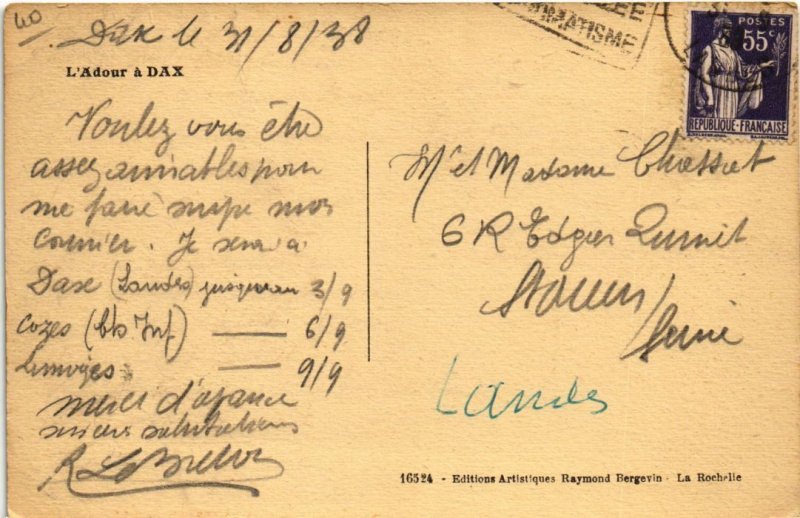 40
Dax le 31/8/38
L'Adour à DAX
Voulez vous être
assez aimables pour
me faire suivre mon
courrier. Je serai à
Dax (Landes) jusqu'au 3/9
Cozes (Chte Inf) — 6/9
Limoges — 9/9
merci d'avance
sincères salutations
R Le Breton
RHUMATISME
POSTES
55c
REPUBLIQUE-FRANÇAISE
Mr et Madame Chassat
6 R Edgar Quinet
St Ouen
Seine
Landes
16524 - Editions Artistiques Raymond Bergevin - La Rochelle